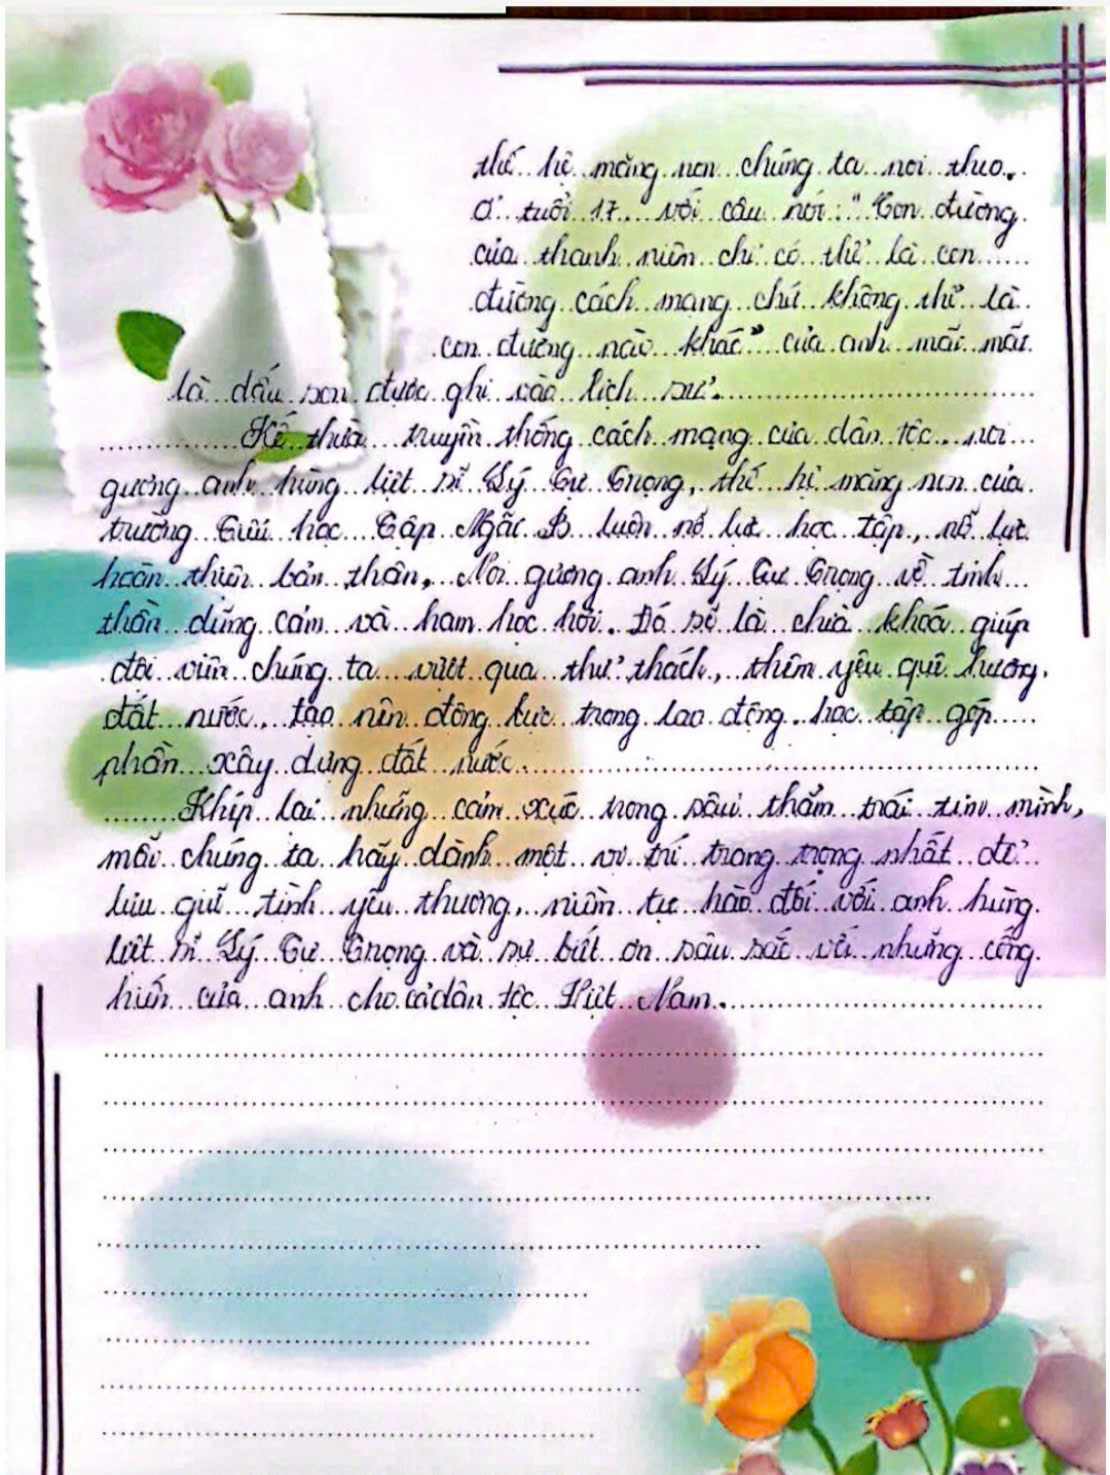 thế hệ măng non chúng ta noi theo.
Ở tuổi 17 với câu nói: "Con đường
của thanh niên chỉ có thể là con
đường cách mạng chứ không thể là
con đường nào khác" của anh mãi mãi
là dấu son được ghi vào lịch sử.
Kế thừa truyền thống cách mạng của dân tộc noi
gương anh hùng liệt sĩ Lý Tự Trọng, thế hệ măng non của
trường Tiểu học Tập Ngãi B luôn nổ lực học tập, nổ lực
hoàn thiện bản thân. Noi gương anh Lý Tự Trọng về tinh
thần dũng cảm và ham học hỏi. Đó sẽ là chìa khoá giúp
đội viên chúng ta vượt qua thử thách, thêm yêu quê hương,
đất nước, tạo nên động lực trong lao động, học tập góp
phần xây dựng đất nước.
Khép lại những cảm xúc trong sâu thẳm trái tim mình,
mỗi chúng ta hãy dành một vị trí trang trọng nhất để
lưu giữ tình yêu thương, niềm tự hào đối với anh hùng
liệt sĩ Lý Tự Trọng và sự biết ơn sâu sắc với những cống
hiến của anh cho cả dân tộc Việt Nam.